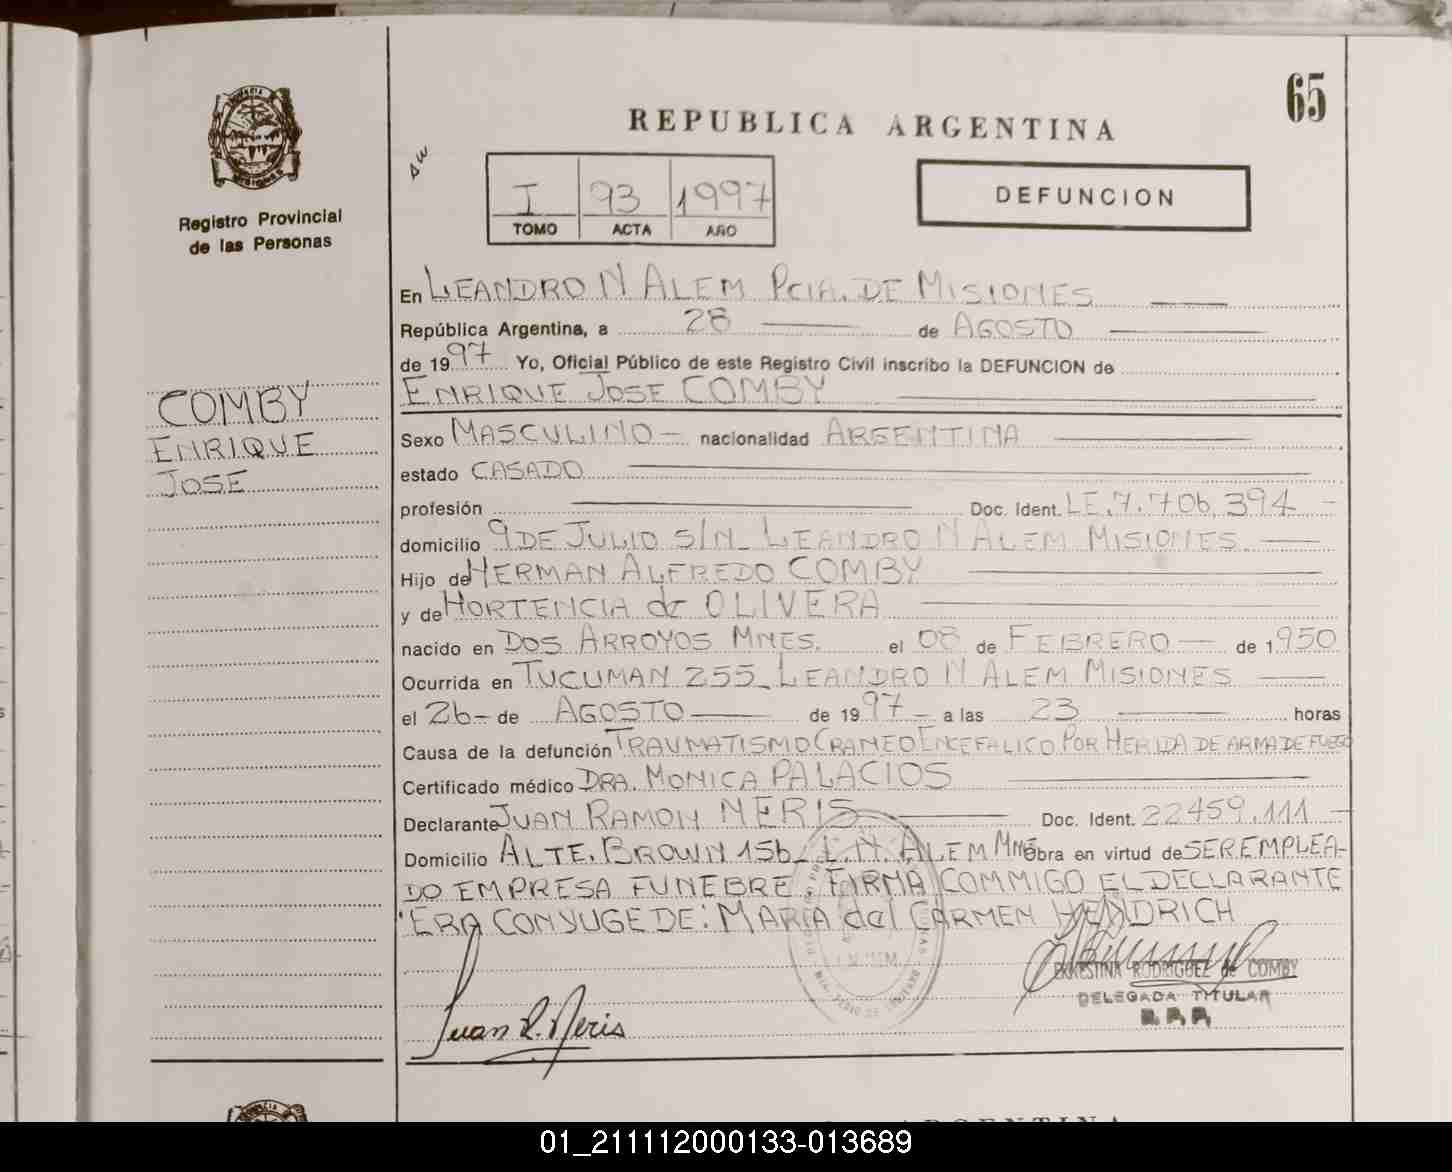 65
REPUBLICA ARGENTINA
Registro Provincial
de las Personas
I 93 1997
TOMO ACTA AÑO
DEFUNCION
COMBY
ENRIQUE
JOSE
En LEANDRO N ALEM PCIA. DE MISIONES
República Argentina, a 28 de AGOSTO
de 1997 Yo, Oficial Público de este Registro Civil inscribo la DEFUNCION de
ENRIQUE JOSE COMBY
Sexo MASCULINO - nacionalidad ARGENTINA
estado CASADO
profesión Doc. Ident. LE.7.706.394 -
domicilio 9 DE JULIO S/N_ LEANDRO N ALEM MISIONES.
Hijo de HERMAN ALFREDO COMBY
y de HORTENCIA de OLIVERA
nacido en DOS ARROYOS MNES. el 08 de FEBRERO - de 1950
Ocurrida en TUCUMAN 255_ LEANDRO N ALEM MISIONES
el 26 - de AGOSTO de 1997 - a las 23 horas
Causa de la defunción TRAUMATISMO CRANEO ENCEFALICO POR HERIDA DE ARMA DE FUEGO
Certificado médico DRA. MONICA PALACIOS
Declarante JUAN RAMON NERIS Doc. Ident. 22459.111 -
Domicilio ALTE. BROWN 156_ L.N. ALEM MNES obra en virtud de SER EMPLEA-
DO EMPRESA FUNEBRE. FIRMA CONMIGO EL DECLARANTE
ERA CONYUGE DE: MARIA del CARMEN HENDRICH
Juan R. Neris
ERNESTINA RODRIGUEZ de COMBY
DELEGADA TITULAR
R.P.P.
01_211112000133-013689